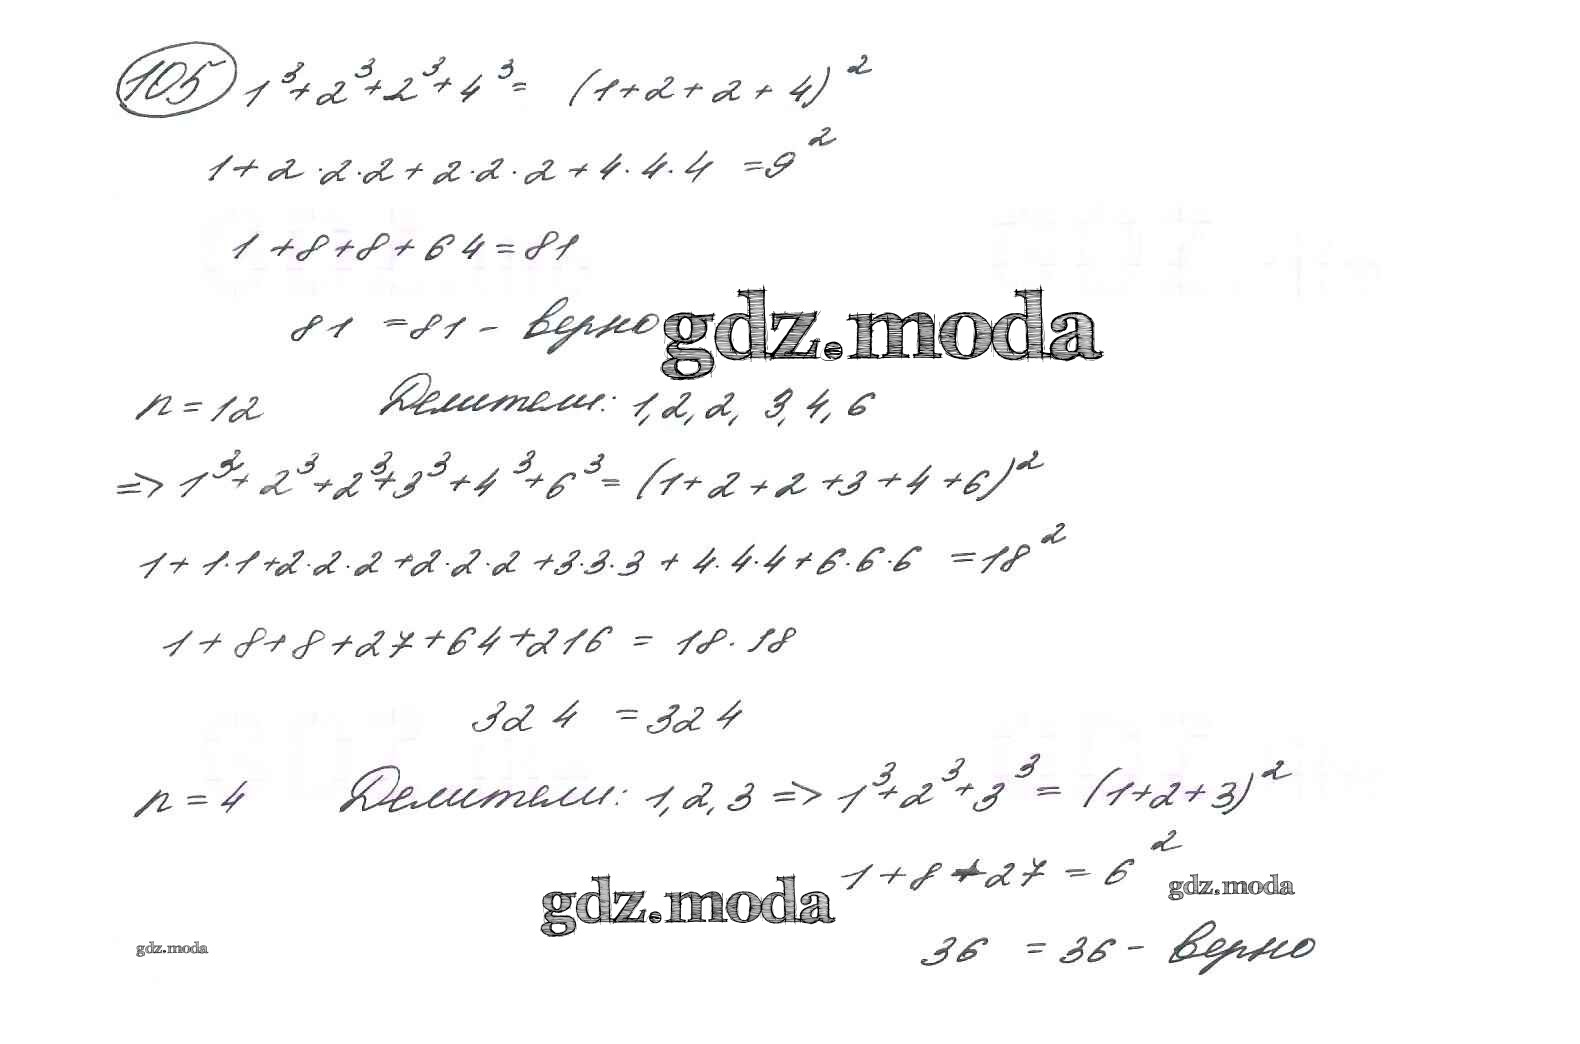 105 1³+2³+2³+4³= (1+2+2+4)²
1+2·2·2+2·2·2+4·4·4 =9²
1+8+8+64=81
81 =81 - верно
gdz.moda
n=12 Делители: 1,2,2, 3,4,6
=> 1³+2³+2³+3³+4³+6³=(1+2+2+3+4+6)²
1+1·1+2·2·2+2·2·2+3·3·3+4·4·4+6·6·6 =18²
1+8+8+27+64+216 = 18·18
324 =324
n=4 Делители: 1,2,3 => 1³+2³+3³= (1+2+3)²
1+8+27=6²
gdz.moda
gdz.moda
36 =36 - верно
gdz.moda